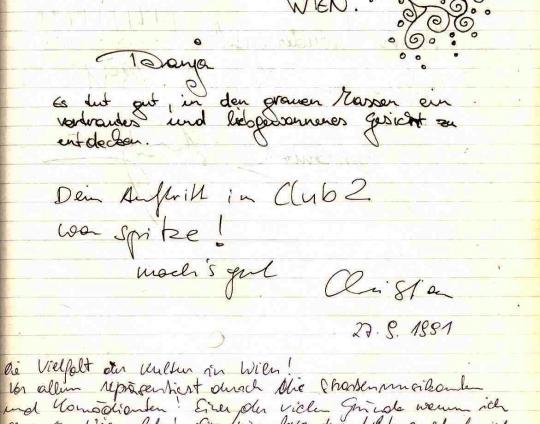 WIEN.
Tanja
Es tut gut, in den grauen Massen ein
vertrautes und liebgewonnenes Gesicht zu
entdecken.
Dein Auftritt im Club 2
war spitze!
mach's gut
Christian
27. 9. 1991
die Vielfalt der Kultur in Wien!
Vor allem repräsentiert durch die Strassenmusikanten
und Komödianten! Einer der vielen Gründe warum ich